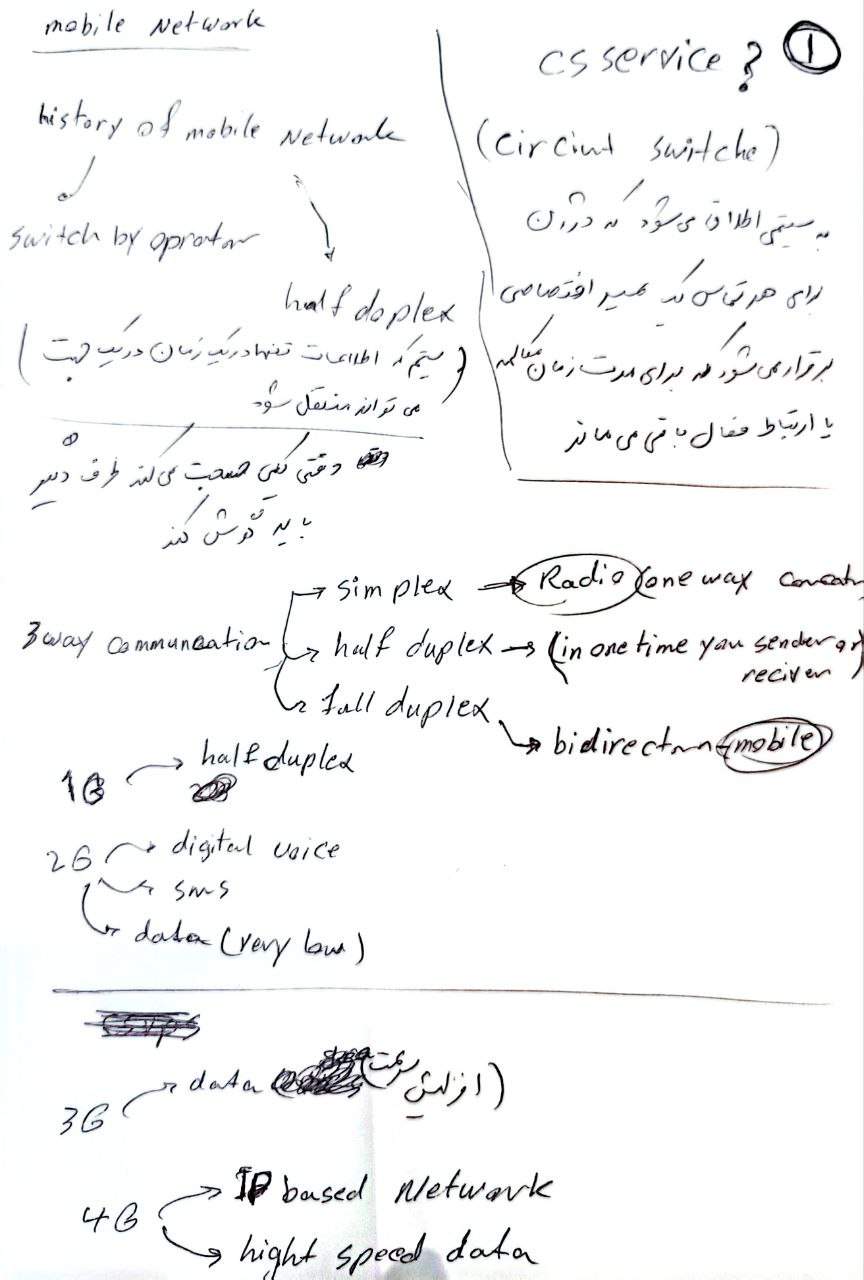 mobile Network
history of mobile Network
switch by oprator
half doplex
(سیتم که اطلاعات تنها در یک زمان در یک جهت
می تواند منتقل شود)
وقتی یکی صحبت می کند طرف دیگر
باید گوش کند
1
CS service?
(Circiut switche)
به سیتمی اطلاق می شود که در آن
برای هر تماس یک مسیر اختصاصی
برقرار می شود که برای مدت زمان مکالمه
یا ارتباط فعال باقی می ماند
3 way communcation
simplex → Radio (one way
half duplex → (in one time you sender or
reciver)
full duplex
→ bidirection - mobile
1G → half duplex
2G → digital voice
→ sms
→ data (very low)
3G → data (افزایش سرعت)
4G → IP based Network
→ hight speed data